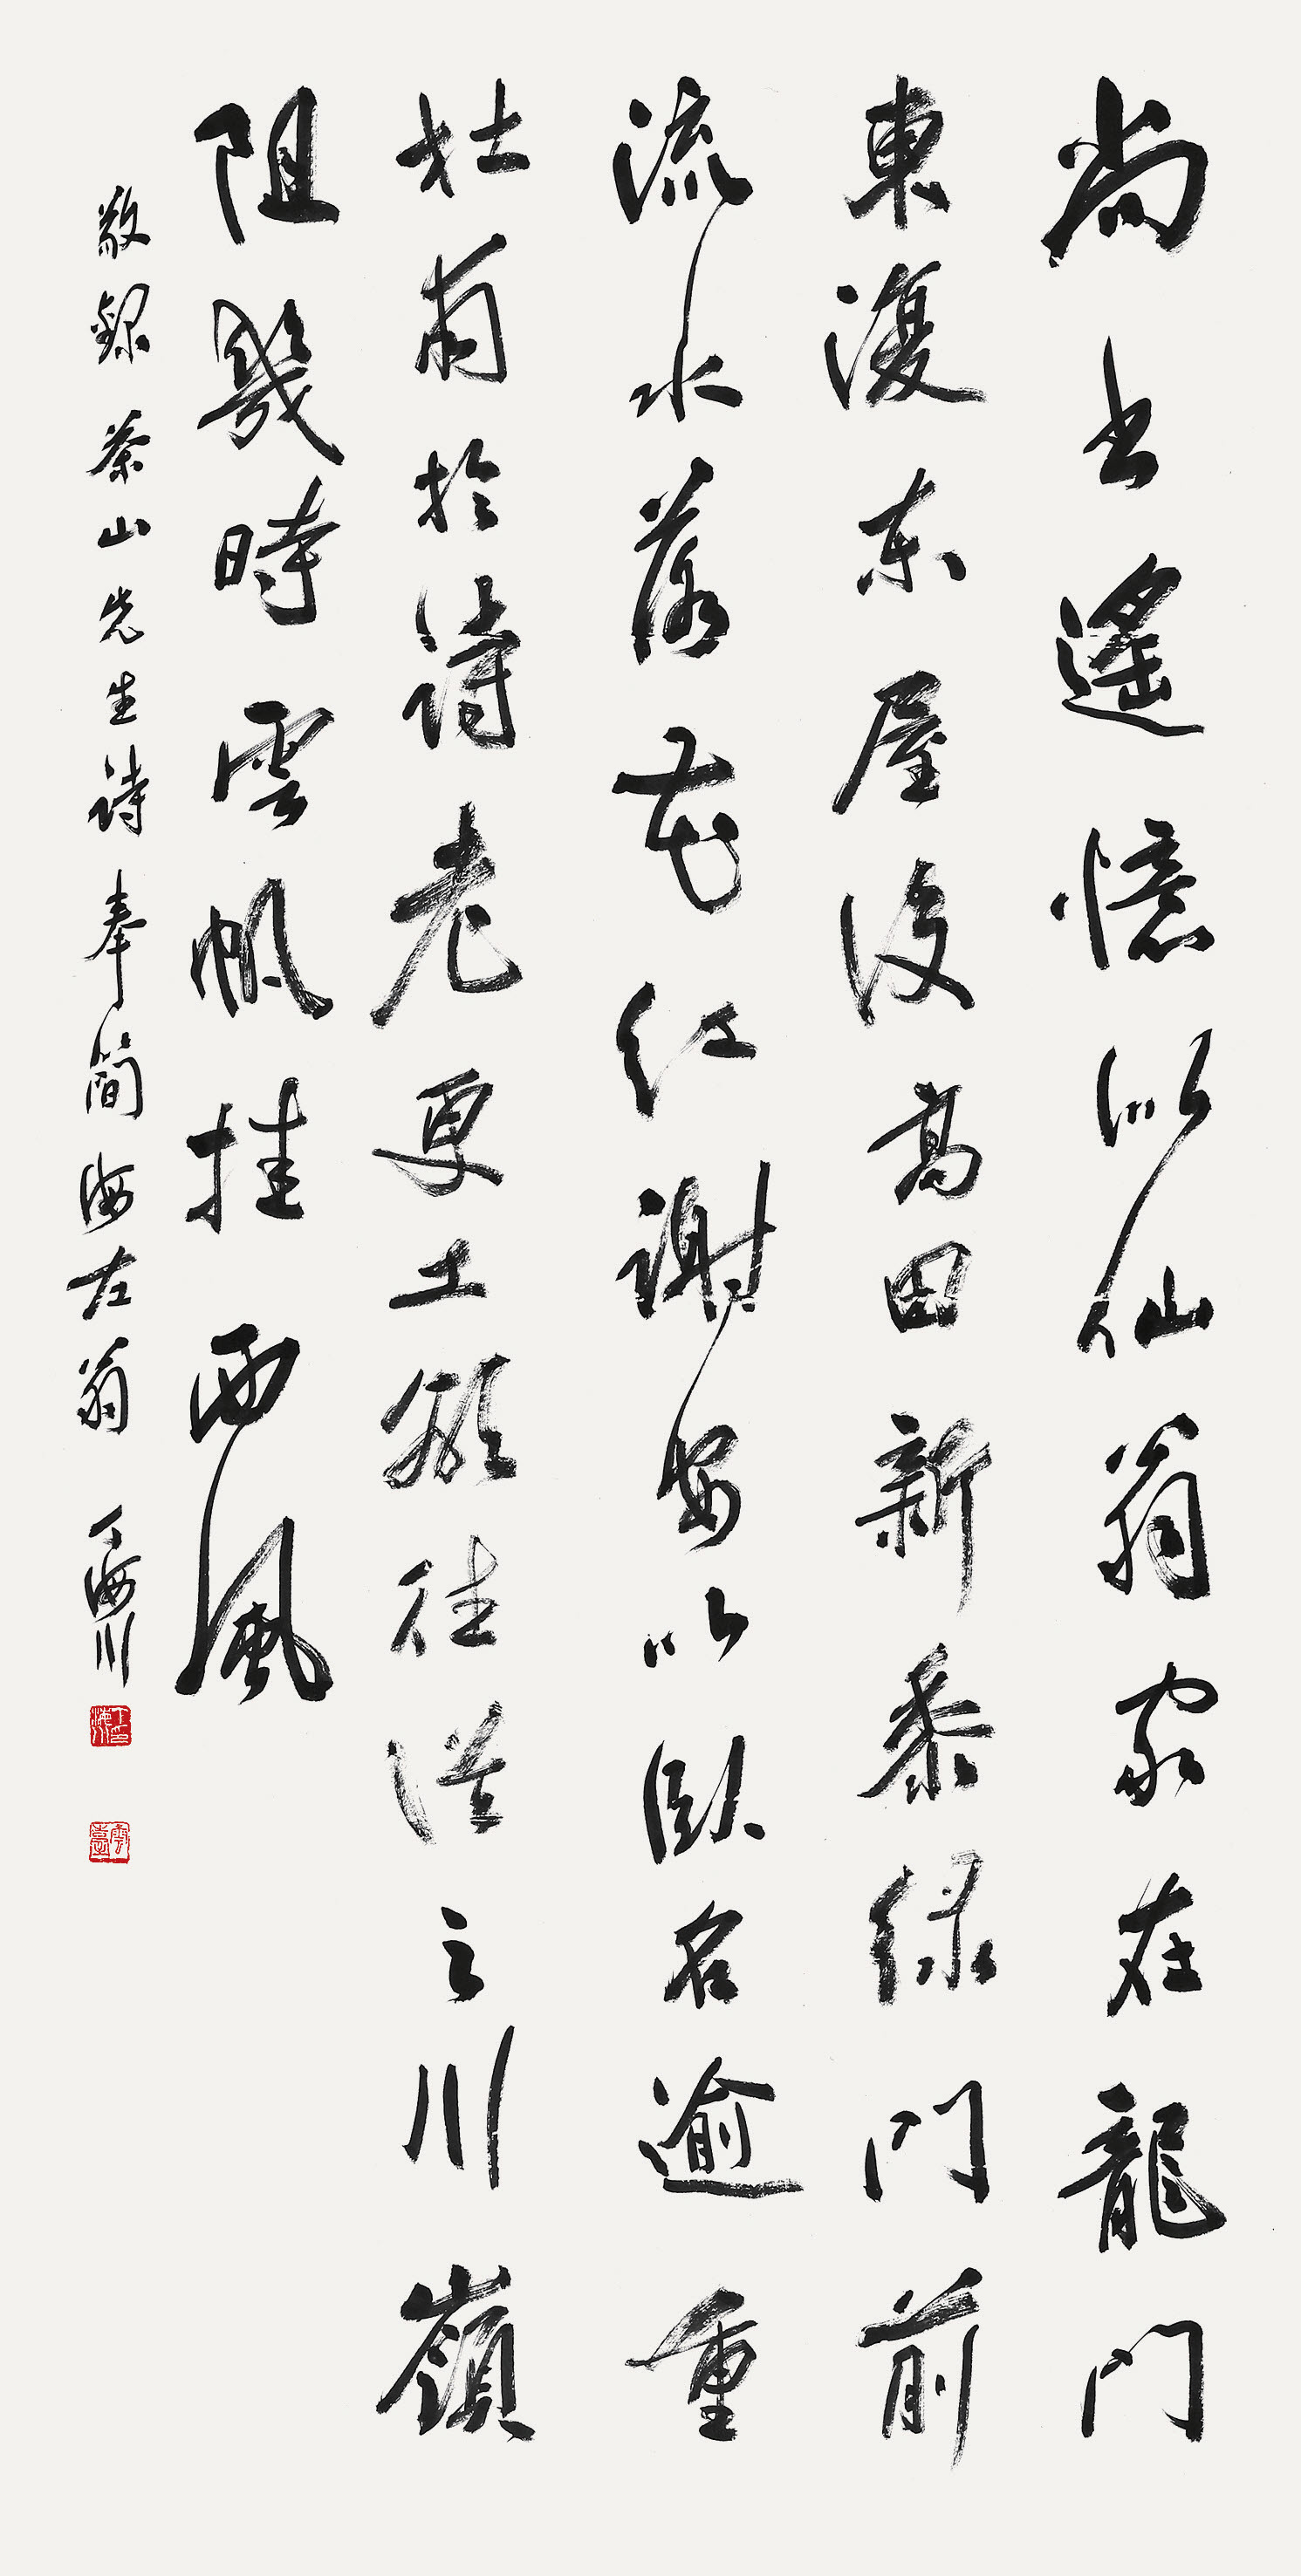 尚書遙憶似仙翁家在龍門
東復东屋後高田新黍綠門前
流水落花紅謝安以臥名逾重
杜甫於詩老更工願往從之川嶺
阻幾時雲帆挂西風
敬錄茶山先生詩奉簡海左翁 丁海川